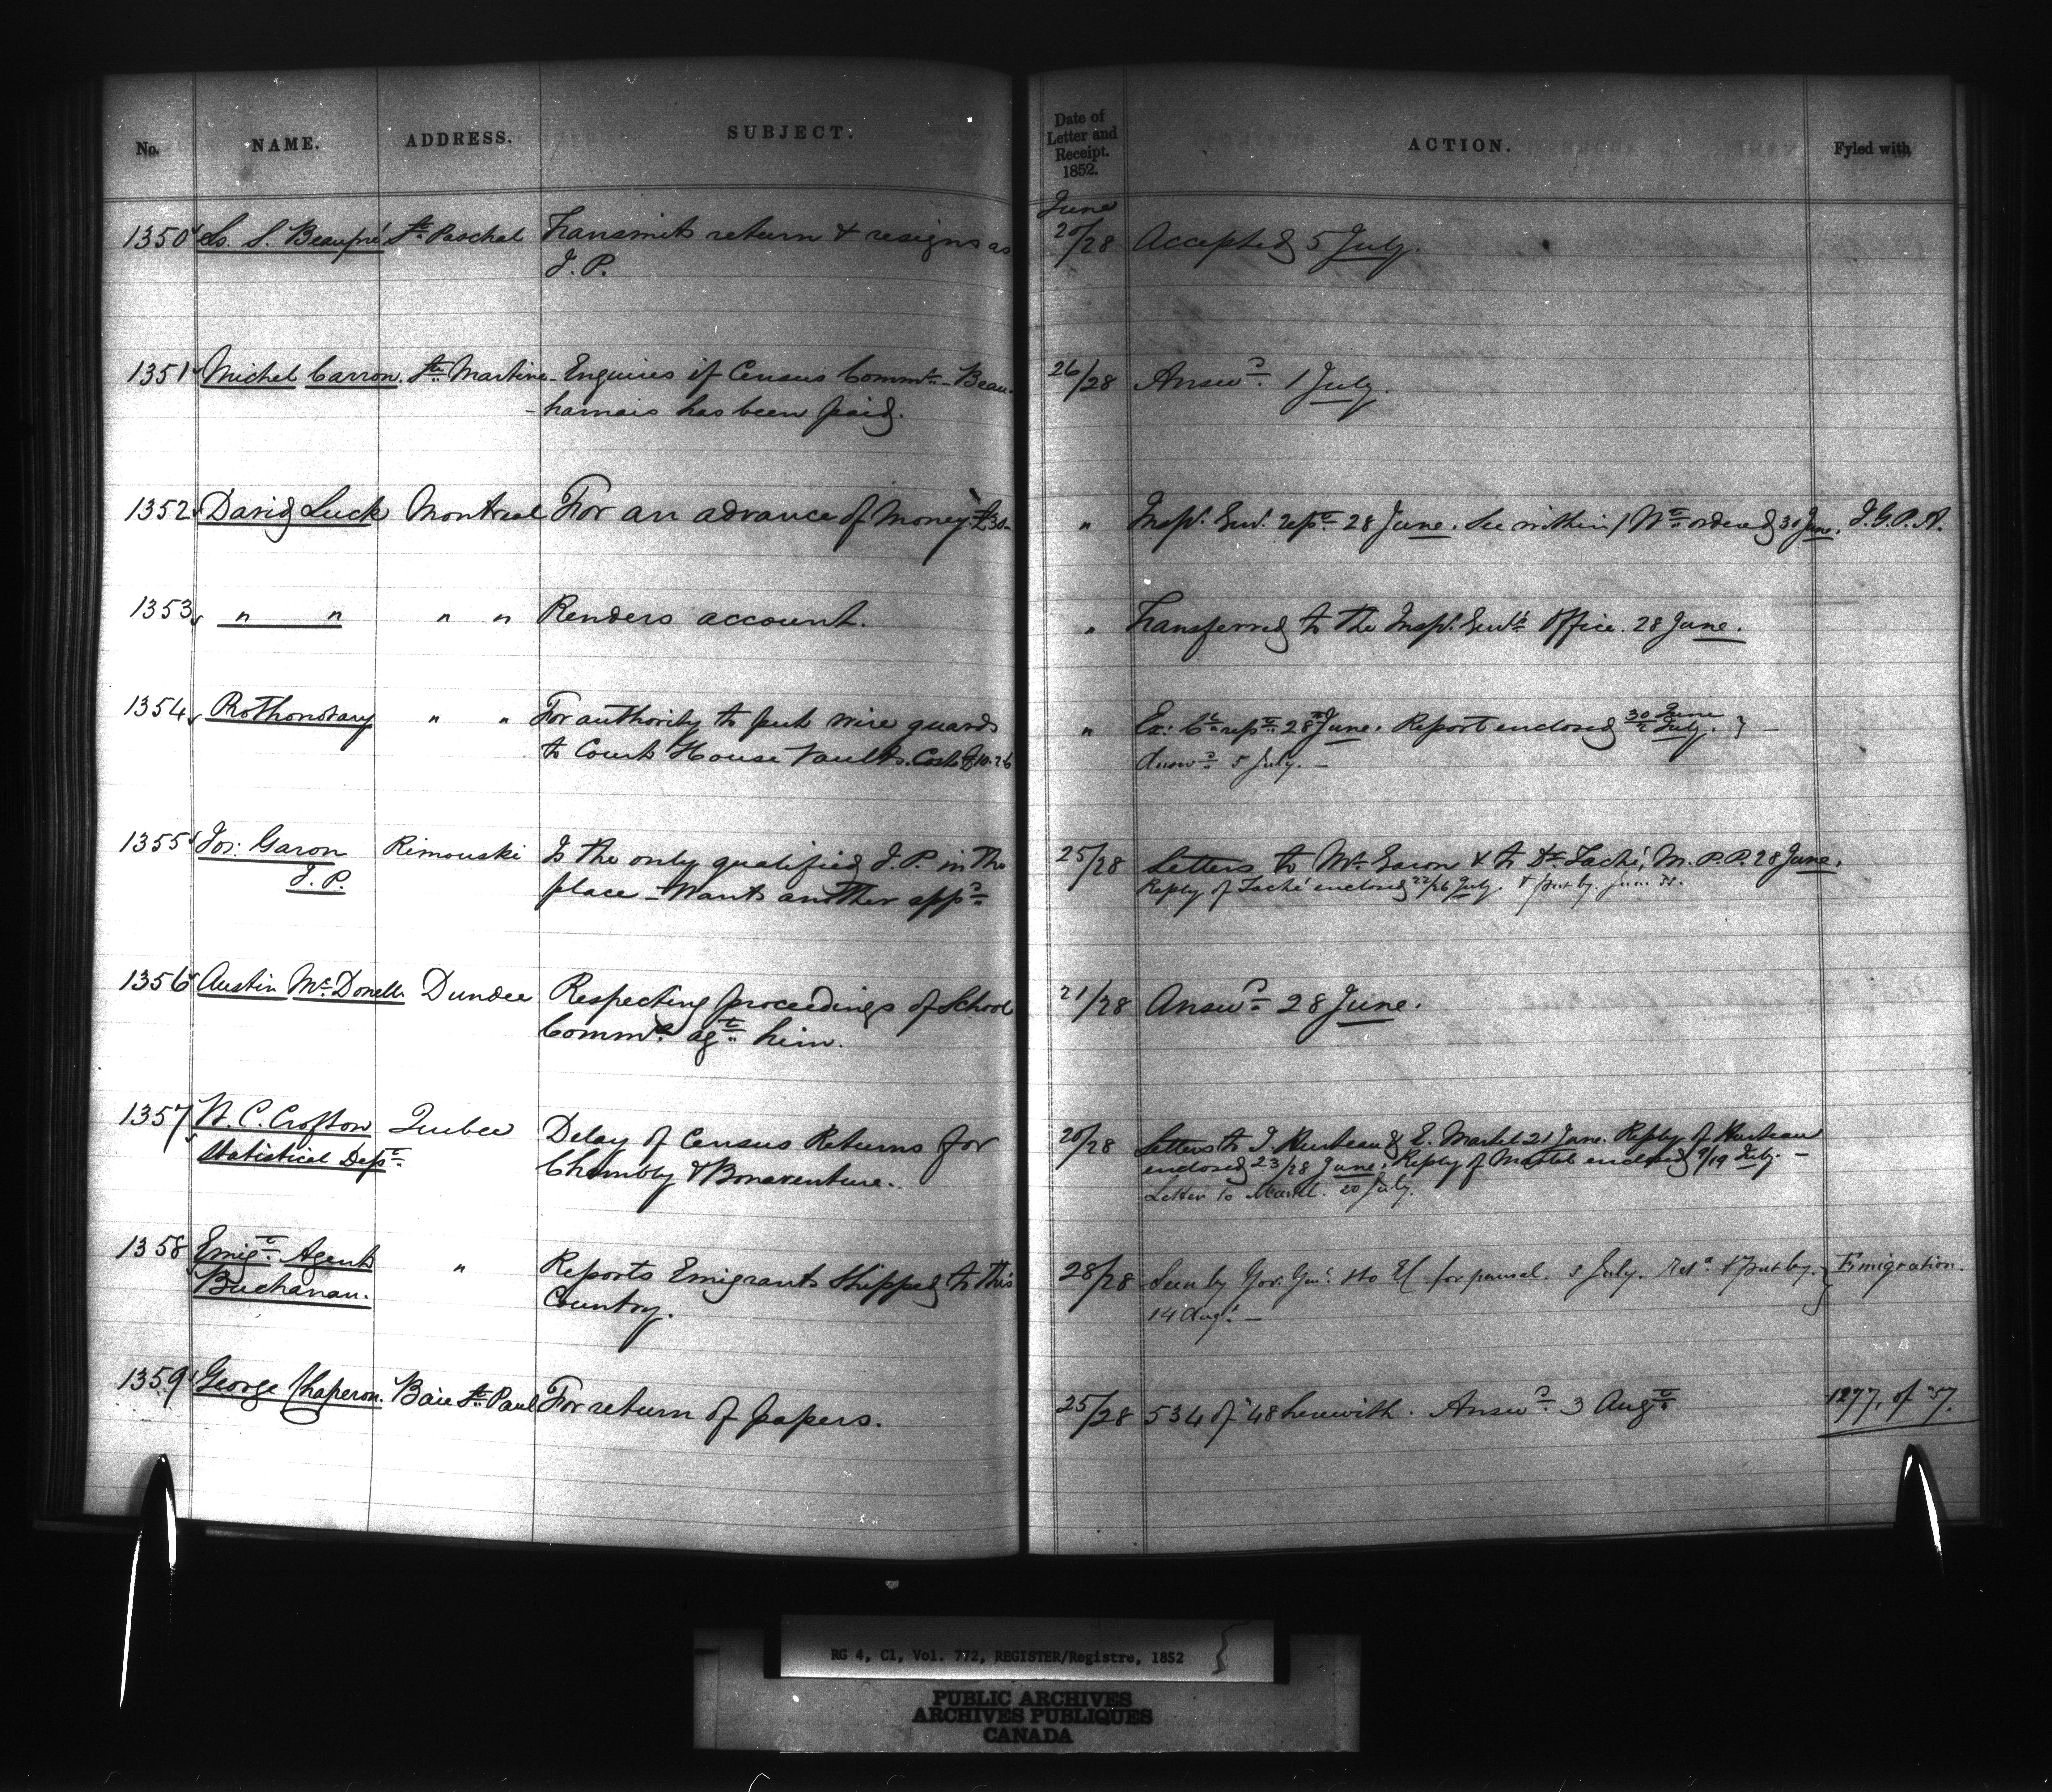 No. NAME. ADDRESS. SUBJECT.
1350 Ls. S. Beaupré St. Paschal Transmits return & resigns as
J. P.
1351 Michel Carron. Ste Martine - Enquires if Census Commr. - Beau-
-harnais has been paid.
1352 David Luck Montreal For an advance of Money - £30-
1353 " " " " Renders account.
1354 Prothonotary " " For authority to put wire guards
to Court House Vaults. Cost £10.
1355 Jos: Garon Rimouski Is the only qualified J. P. in the
J. P. place - Wants another appd
1356 Austin McDonell Dundee Respecting proceedings of School
Commrs agst him.
1357 W. C. Crofton Quebec Delay of Census Returns for
Statistical Dept. Chambly & Bonaventure.
1358 Emign. Agent " Reports Emigrants Shipped to this
Buchanan. Country.
1359 George Chaperon. Baie St. Paul For return of papers.
Date of
Letter and
Receipt.
1852. ACTION. Fyled with
June
20/28 Accepted 5 July.
26/28 Answd. 1 July.
" Inspr. Genl. repd 28 June. See within / Wt. ordered 30 June. I. G. P. A.
" Transferred to the Inspr. Genl's Office. 28 June.
" Ex: Cl rept 28 June. Report enclosed 30 June/2 July. } -
Answd 5 July. -
25/28 Letters to Mr. Garon & to Dr. Taché, M. P. P. 28 June.
Reply of Taché enclosed 22/26 July. & put by.
21/28 Answd 28 June.
20/28 Letters to J. Hurteau & E. Martel 21 June. Reply of Hurteau
enclosed 23/28 June. Reply of Martel enclosed 9/19 July. -
Letter to Martel. 20 July.
28/28 Seen by Gov. Genl. for perusal. 5 July. Retd. & put by. } Emigration.
14 Augt. -
25/28 534 of '48 herewith. Answd. 3 Augt 1277, of '57.
RG 4, C1, Vol. 772, REGISTER/Registre, 1852
PUBLIC ARCHIVES
ARCHIVES PUBLIQUES
CANADA